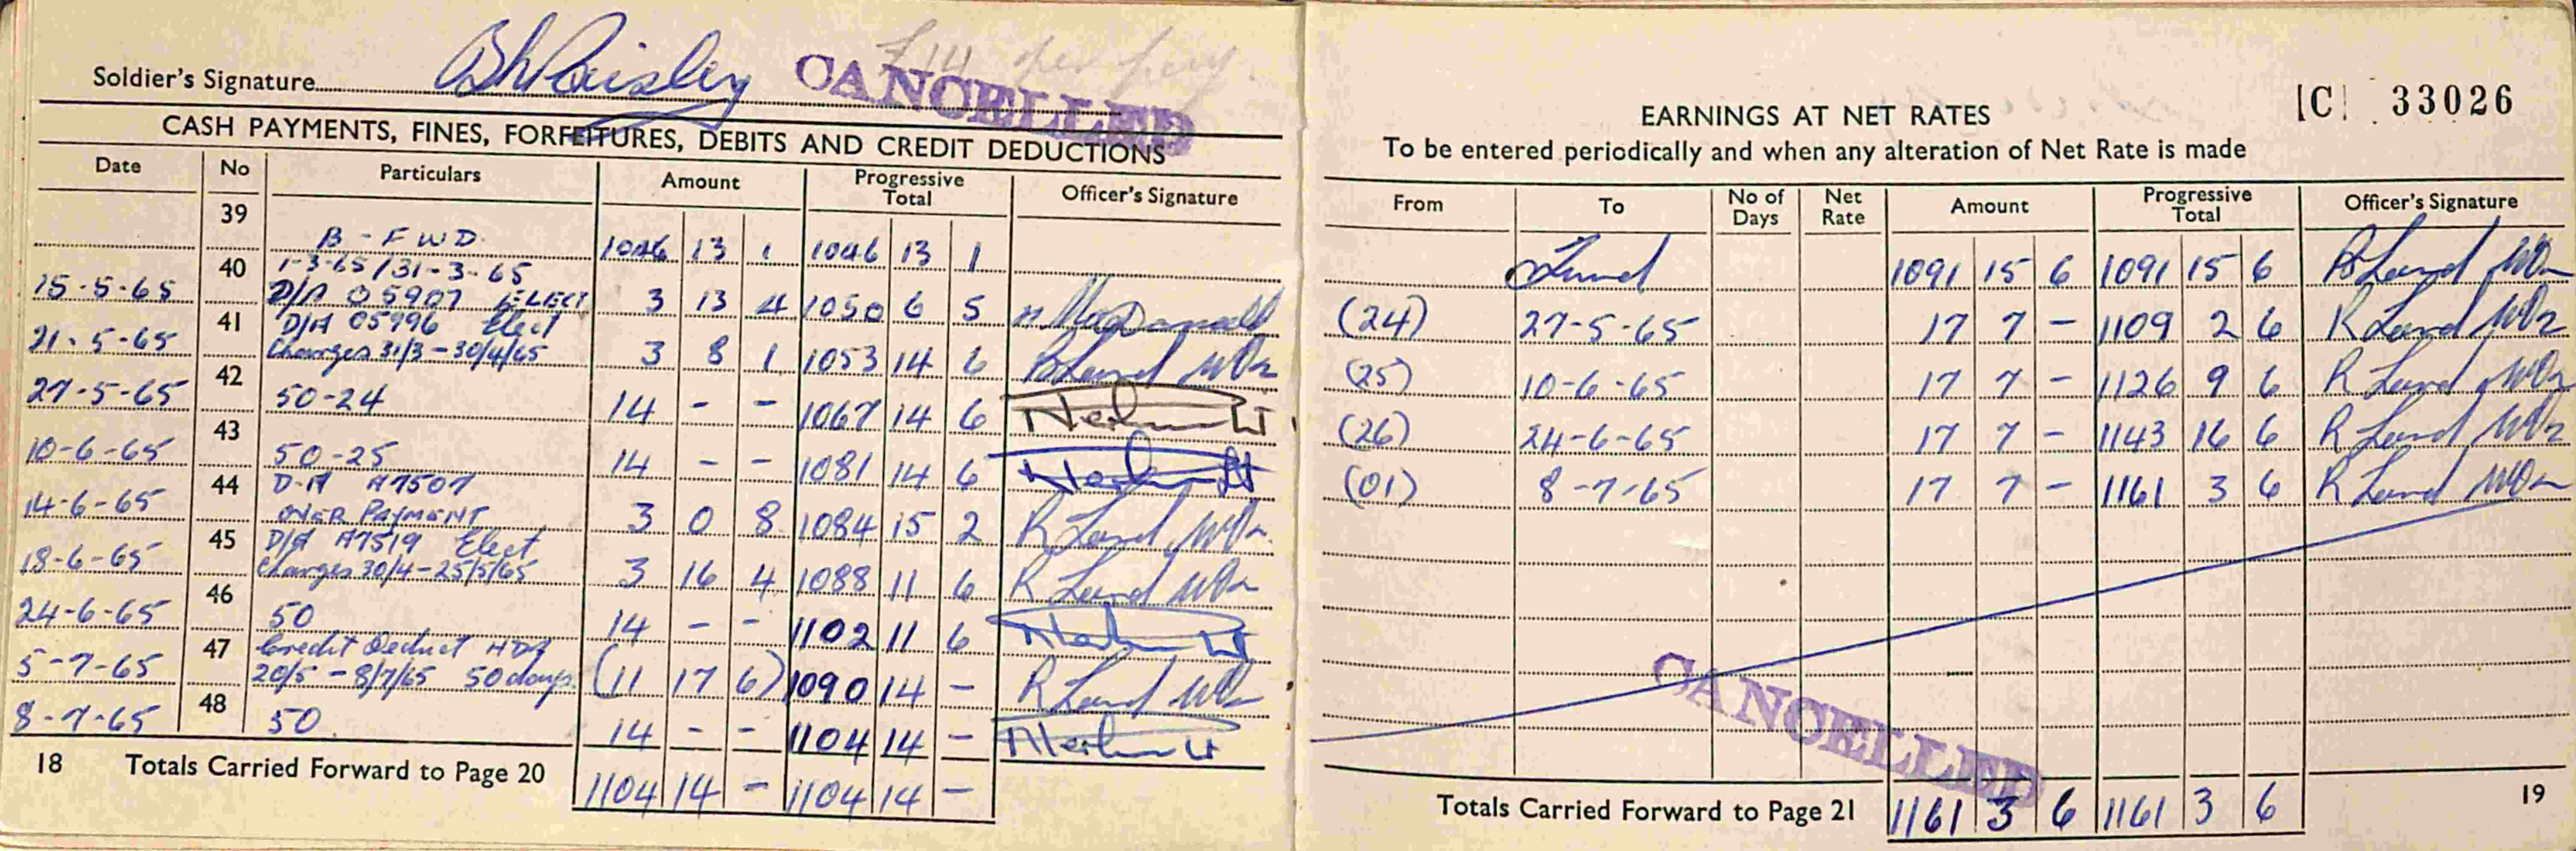 £14 per pay.
Soldier's Signature BhPaisley CANCELLED
CASH PAYMENTS, FINES, FORFEITURES, DEBITS AND CREDIT DEDUCTIONS
Date No Particulars Amount Progressive Total Officer's Signature
39 B-FWD. 1046 13 1 1046 13 1
15-5-65 40 1-3-65/31-3-65 D/A 05907 ELECT 3 13 4 1050 6 5
21-5-65 41 D/A 05996 Elect Charges 31/3-30/4/65 3 8 1 1053 14 6 R Lund WO2
27-5-65 42 50-24 14 - - 1067 14 6
10-6-65 43 50-25 14 - - 1081 14 6
14-6-65 44 D-A A7507 OVER PAYMENT 3 0 8 1084 15 2 R Lund WO2
18-6-65 45 D/A A7519 Elect Charges 30/4-25/5/65 3 16 4 1088 11 6 R Lund WO2
24-6-65 46 50 14 - - 1102 11 6
5-7-65 47 Credit Deduct 20/5-8/7/65 50 days. (11 17 6) 1090 14 - R Lund WO2
8-7-65 48 50 14 - - 1104 14 -
18 Totals Carried Forward to Page 20 1104 14 - 1104 14 -
[C] 33026
EARNINGS AT NET RATES
To be entered periodically and when any alteration of Net Rate is made
From To No of Days Net Rate Amount Progressive Total Officer's Signature
1091 15 6 1091 15 6 R Lund WO2
(24) 27-5-65 17 7 - 1109 2 6 R Lund WO2
(25) 10-6-65 17 7 - 1126 9 6 R Lund WO2
(26) 24-6-65 17 7 - 1143 16 6 R Lund WO2
(01) 8-7-65 17 7 - 1161 3 6 R Lund WO2
CANCELLED
Totals Carried Forward to Page 21 1161 3 6 1161 3 6
19